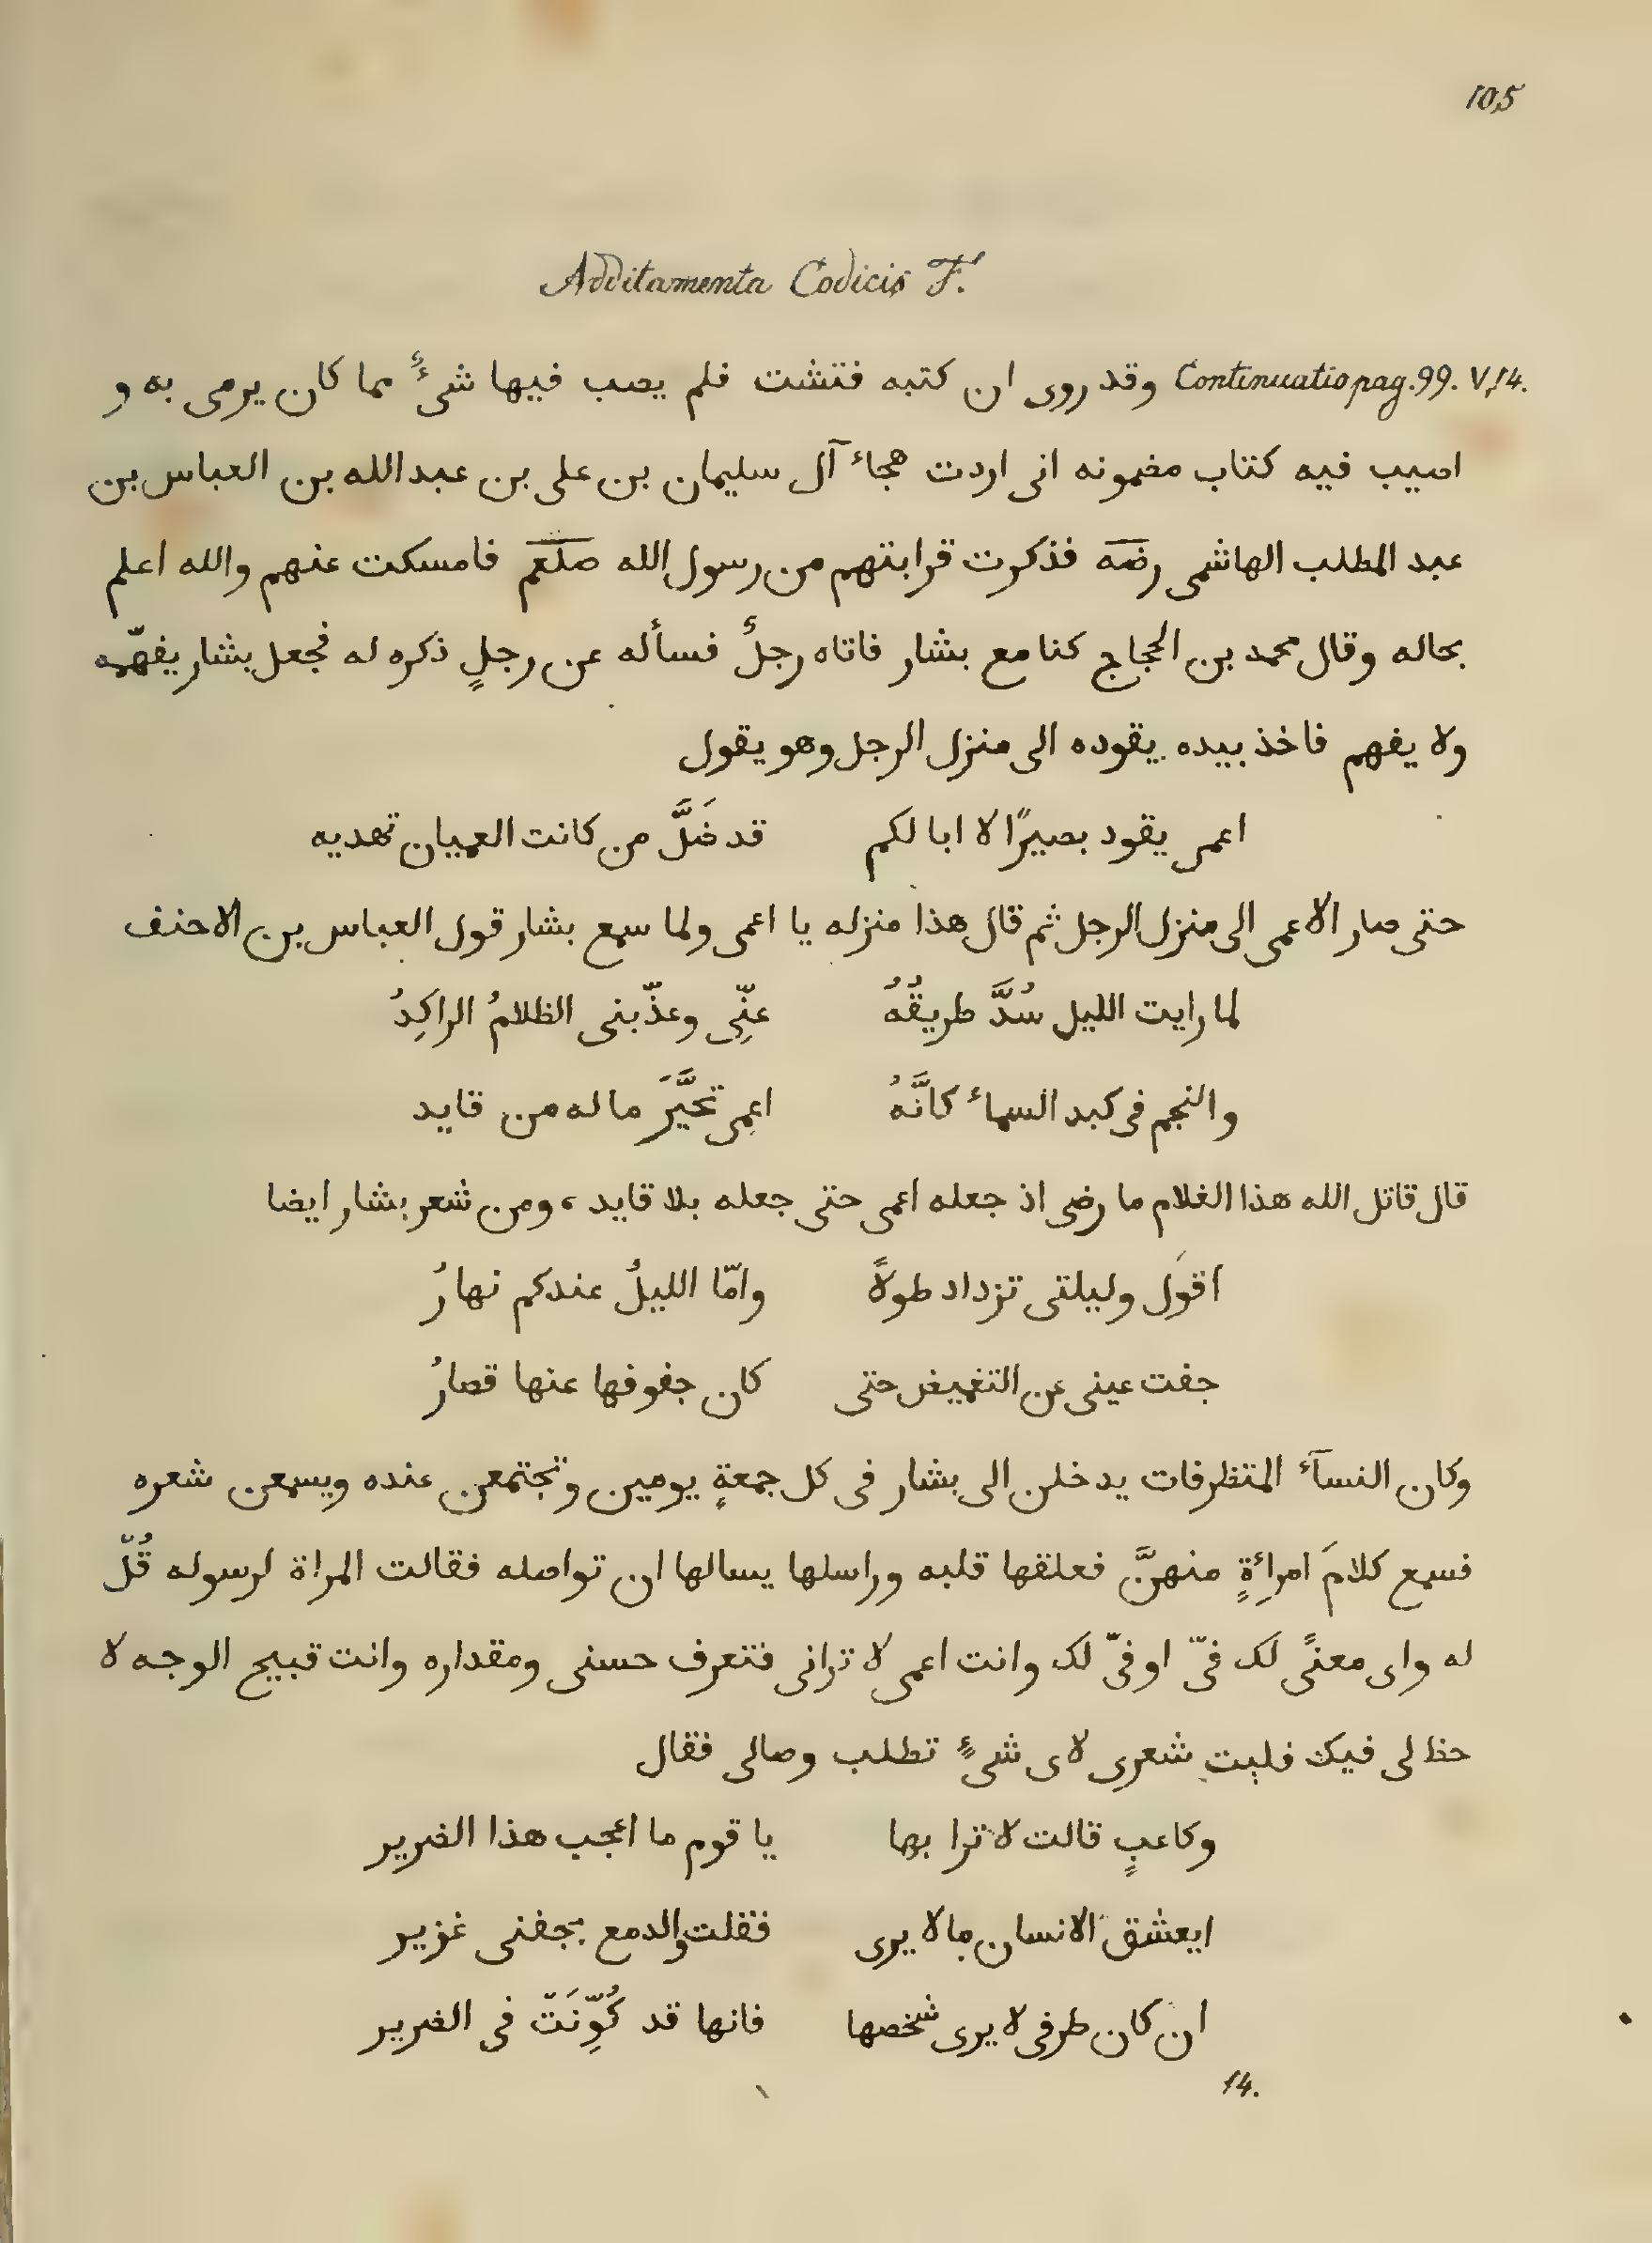 105
Additamenta Codicis F.
Continuatio pag. 99. V, 14. وقد روى ان كتبه فتشت فلم يصب فيها شىءٌ مما كان يرمى به و
اصيب فيه كتاب مضمونه انى اردت هجاء آل سليمان بن على بن عبد الله بن العباس بن
عبد المطلب الهاشمى رضه فذكرت قرابتهم من رسول الله صلعم فامسكت عنهم والله اعلم
بحاله وقال محمد بن الحجاج كنا مع بشار فاتاه رجلٌ فسأله عن رجلٍ ذكره له فجعل بشار يفهّمه
ولا يفهم فاخذ بيده يقوده الى منزل الرجل وهو يقول
اعمى يقود بصيرًا لا ابا لكم قد ضَلَّ من كانت العميان تهديه
حتى صار الاعمى الى منزل الرجل ثم قال هذا منزله يا اعمى ولما سمع بشار قول العباس بن الاحنف
لما رايت الليل سُدَّ طريقُهُ عنِّى وعذّبنى الظلامُ الراكِدُ
والنجم فى كبد السماء كانَّهُ اعمى تحَيَّرَ ما له من قايد
قال قاتل الله هذا الغلام ما رضى اذ جعله اعمى حتى جعله بلا قايد ، ومن شعر بشار ايضا
اقول وليلتى تزداد طولاً وامّا الليلُ عندكم نهارُ
جفت عينى عن التغميض حتى كان جفوفها عنها قصارُ
وكان النسآء المتظرفات يدخلن الى بشار فى كل جمعةٍ يومين وتجتمعن عنده ويسمعن شعره
فسمع كلامَ امرأةٍ منهنَّ فعلقها قلبه وراسلها يسالها ان تواصله فقالت المراة لرسوله قُلّ
له واى معنًى لك فىّ او فىّ لك وانت اعمى لا ترانى فتعرف حسنى ومقداره وانت قبيح الوجه لا
حظ لى فيك فليت شعرى لاى شىءٍ تطلب وصالى فقال
وكاعبٍ قالت لا ترا بها يا قوم ما اعجب هذا الضرير
ايعشق الانسان ما لا يرى فقلت والدمع بجفنى غزير
ان كان طرفى لا يرى شخصها فانها قد كُوِّنَتّ فى الضرير
14.